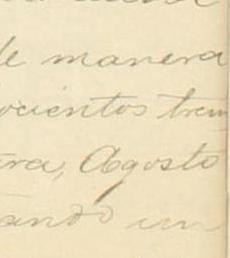 de manera
ocientos trein
ra, Agosto
ando un